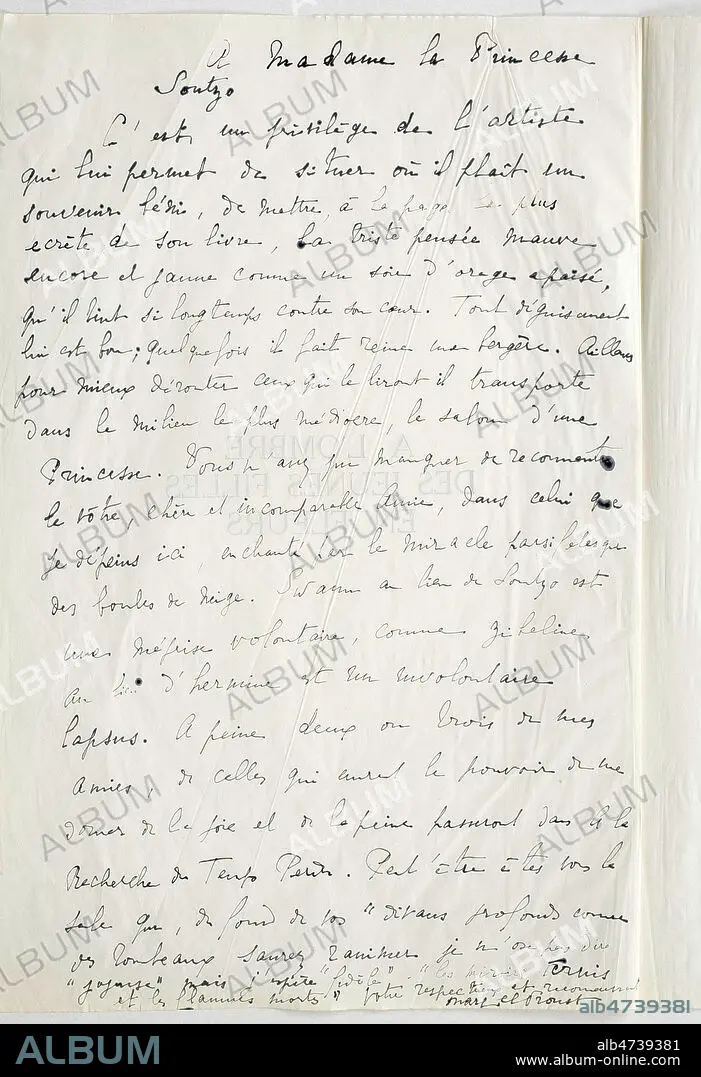 A Madame la Princesse
Soutzo
C'est un privilège de l'artiste
qui lui permet de situer où il plaît un
souvenir béni, de mettre, à la page la plus
secrète de son livre, la triste pensée mauve
encore et jaune comme un soir d'orage apaisé,
qu'il tint si longtemps contre son cœur. Tout déguisement
lui est bon ; quelquefois il fait reine une bergère. Ailleurs
pour mieux dérouter ceux qui le liront il transporte
dans le milieu le plus médiocre, le salon d'une
Princesse. Vous n'avez pu manquer de reconnaître
le vôtre, chère et incomparable Amie, dans celui que
je dépeins ici, enchanté par le miracle parsifalesque
des boules de neige. Swann au lieu de Soutzo est
une méprise volontaire, comme zibeline
au lieu d'hermine est un involontaire
lapsus. A peine deux ou trois de mes
amies, de celles qui eurent le pouvoir de me
donner de la joie et de la peine passeront dans A la
Recherche du Temps Perdu. Peut'être êtes vous la
seule qui, du fond de vos "divans profonds comme
des tombeaux saurez ranimer je n'ose pas dire
"joyeuse" mais j'espère "fidèle" - "les miroirs ternis
et les flammes mortes" Votre respectueux et reconnaissant
Marcel Proust
A L'OMBRE
DES JEUNES FILLES
EN FLEURS
ALBUM
alb4739381
ALBUM
alb4739381
www.album-online.com